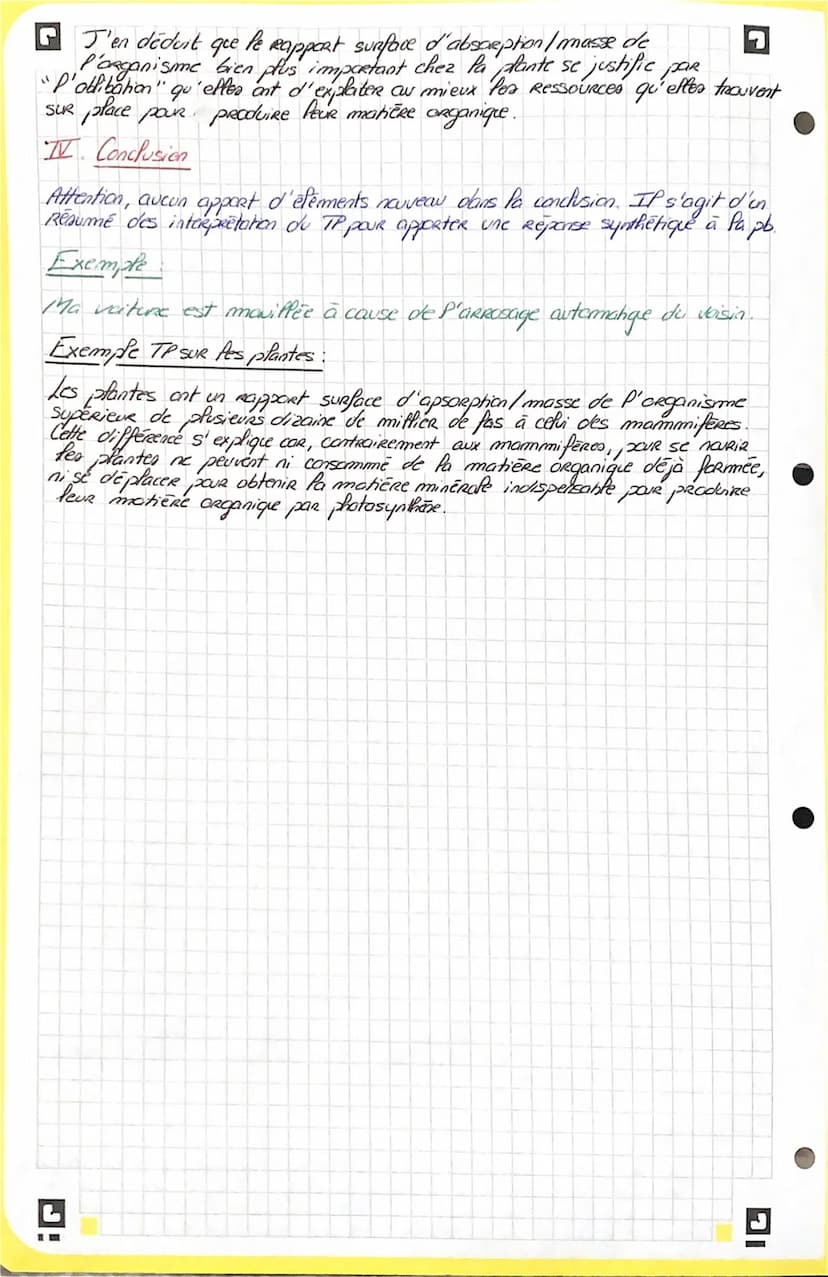 J'en déduit que le rapport surface d'absorption/masse de
l'organisme bien plus important chez la plante se justifie par
"l'oblibation" qu'elles ont d'exploiter au mieux les ressources qu'elles trouvent
sur place pour produire leur matière organique.
IV. Conclusion
Attention, aucun apport d'éléments nouveau dans la conclusion. Il s'agit d'un
résumé des interprétation du TP pour apporter une réponse synthétique à la pb.
Exemple :
Ma voiture est mouillée à cause de l'arrosage automatique du voisin.
Exemple TP sur les plantes :
Les plantes ont un rapport surface d'apsorption/masse de l'organisme
supérieur de plusieurs dizaine de millier de fois à celui des mammmifères.
Cette différence s'explique car, contrairement aux mammmifères, pour se nourir
les plantes ne peuvent ni consommé de la matière organique déjà formée,
ni se déplacer pour obtenir la matière minérale indispensable pour produire
leur matière organique par photosynthèse.